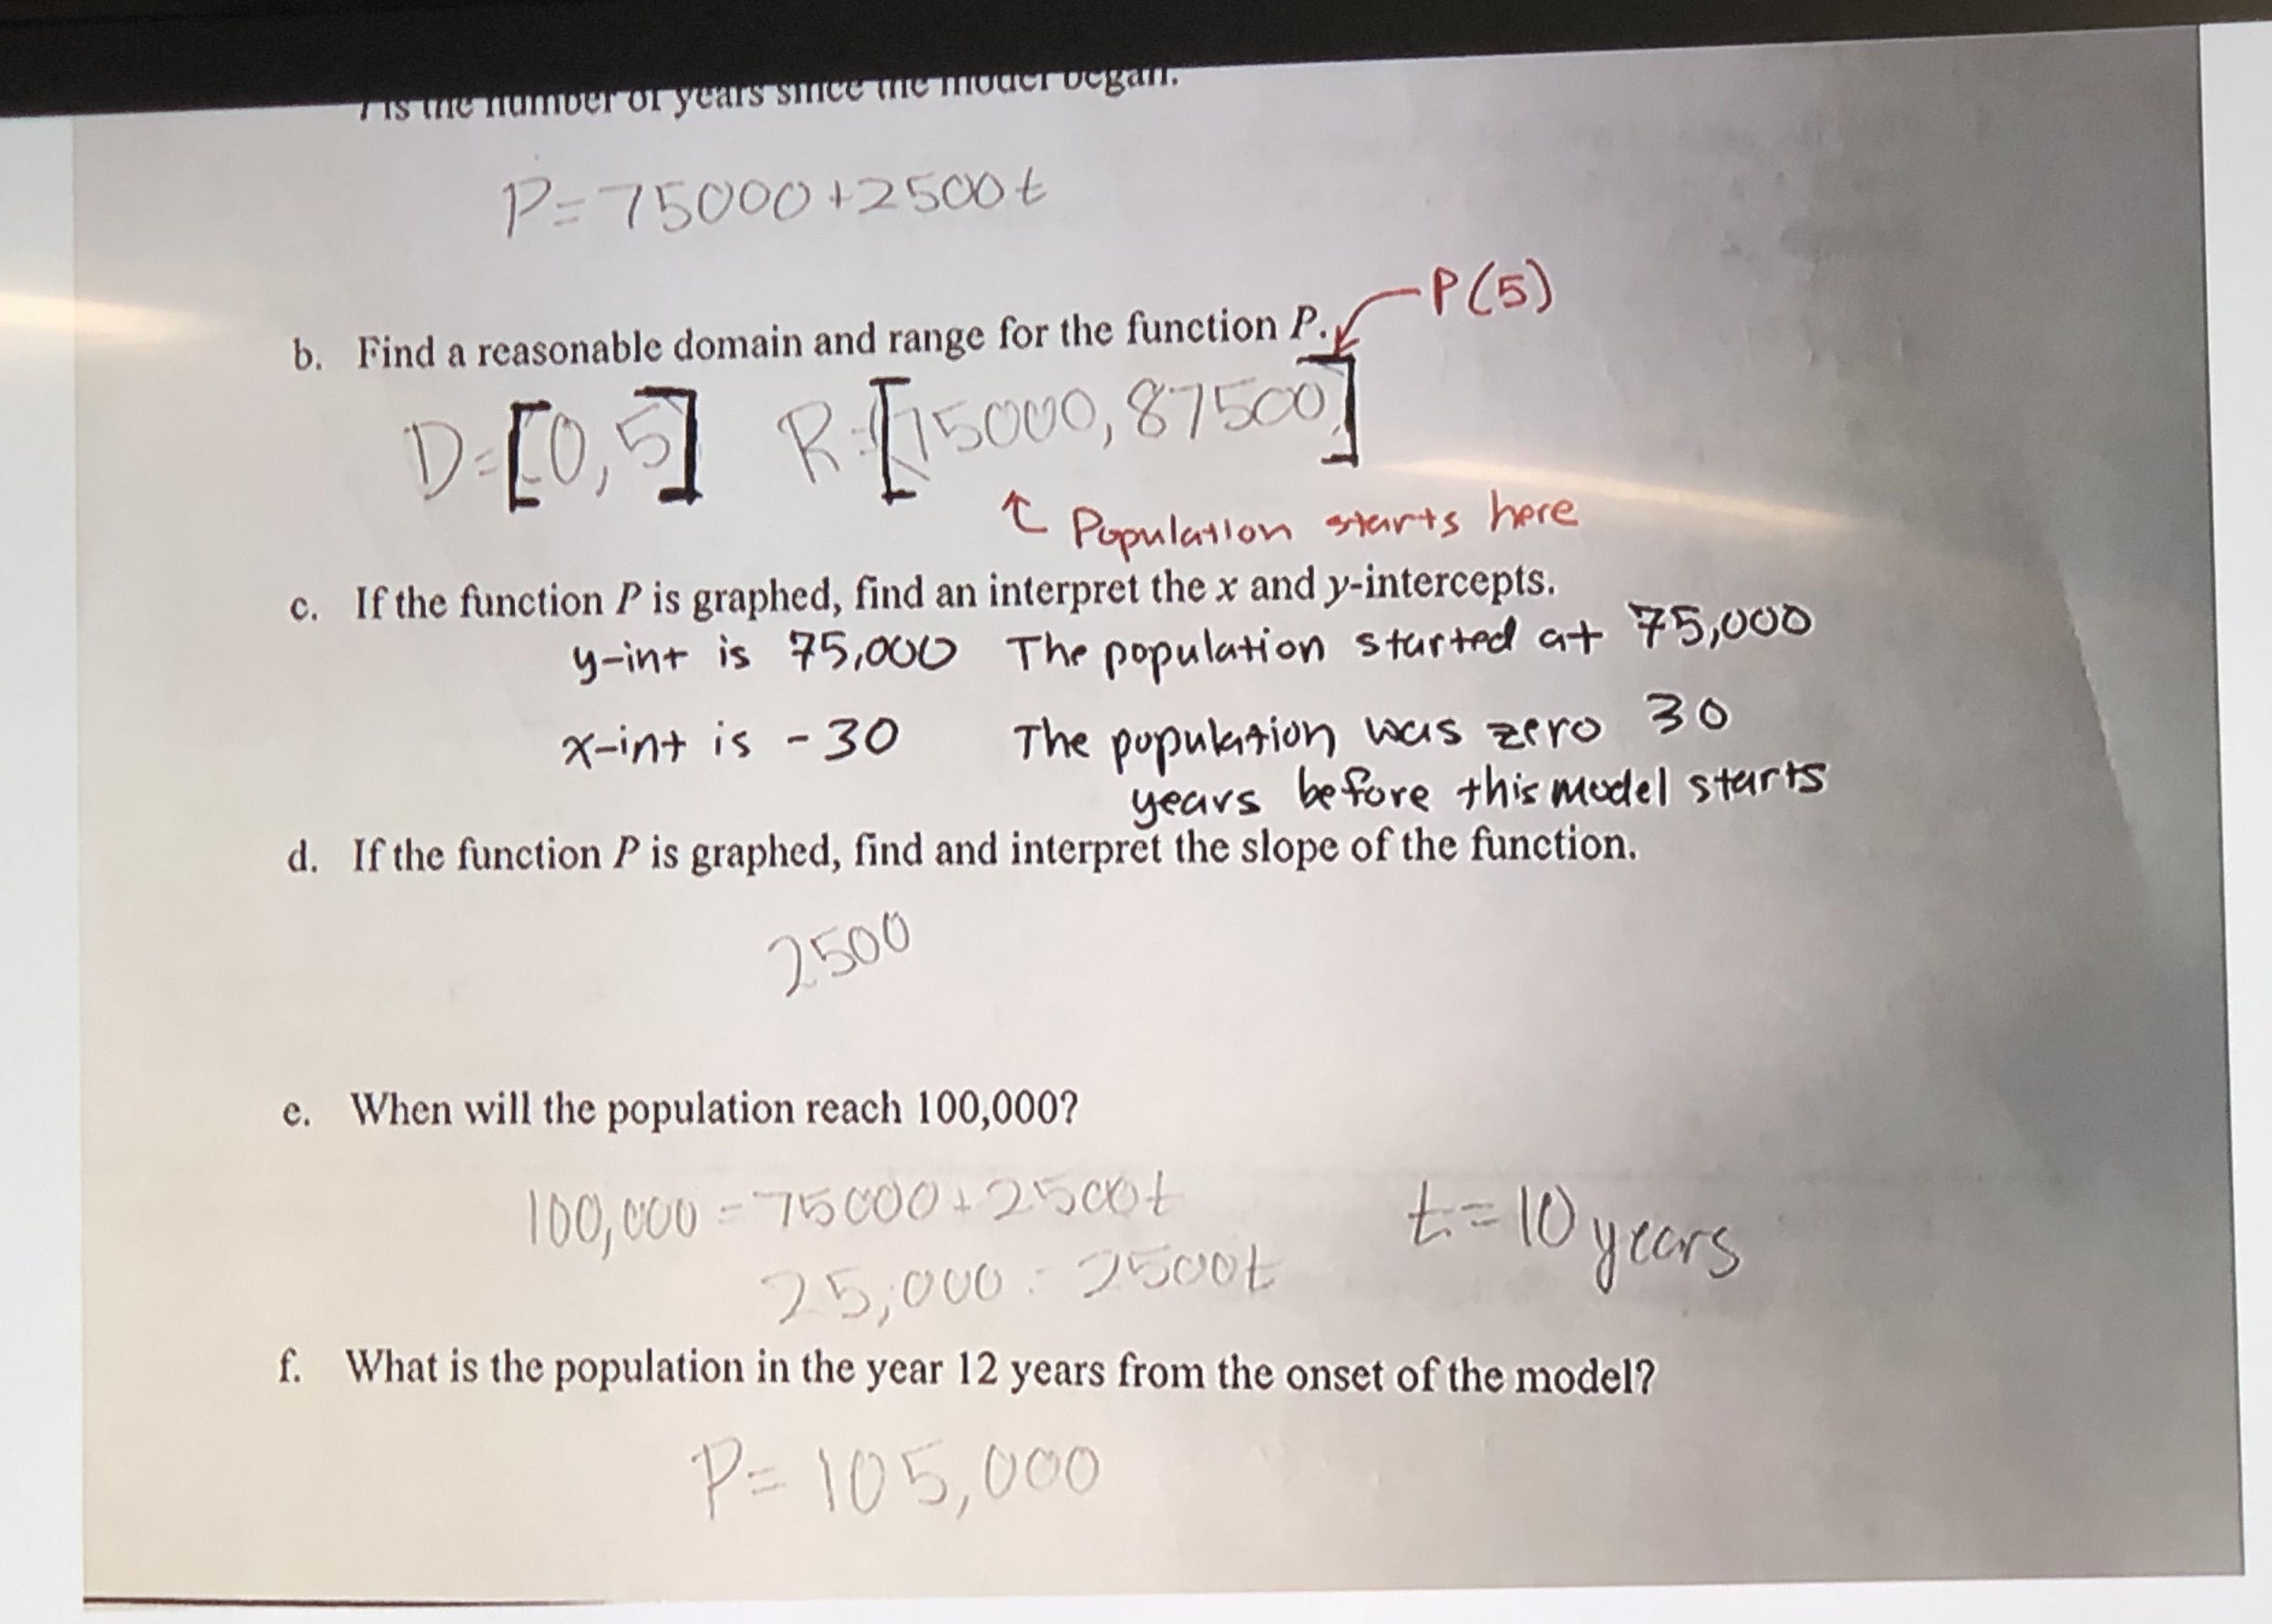 t is the number of years since the model began.
P=75000+2500t
P(5)
b. Find a reasonable domain and range for the function P.
D=[0,5] R=[75000,87500]
Population starts here
c. If the function P is graphed, find an interpret the x and y-intercepts.
y-int is 75,000 The population started at 75,000
x-int is -30 The population was zero 30
years before this model starts
d. If the function P is graphed, find and interpret the slope of the function.
2500
e. When will the population reach 100,000?
100,000=75000+2500t t=10 years
25,000=2500t
f. What is the population in the year 12 years from the onset of the model?
P=105,000